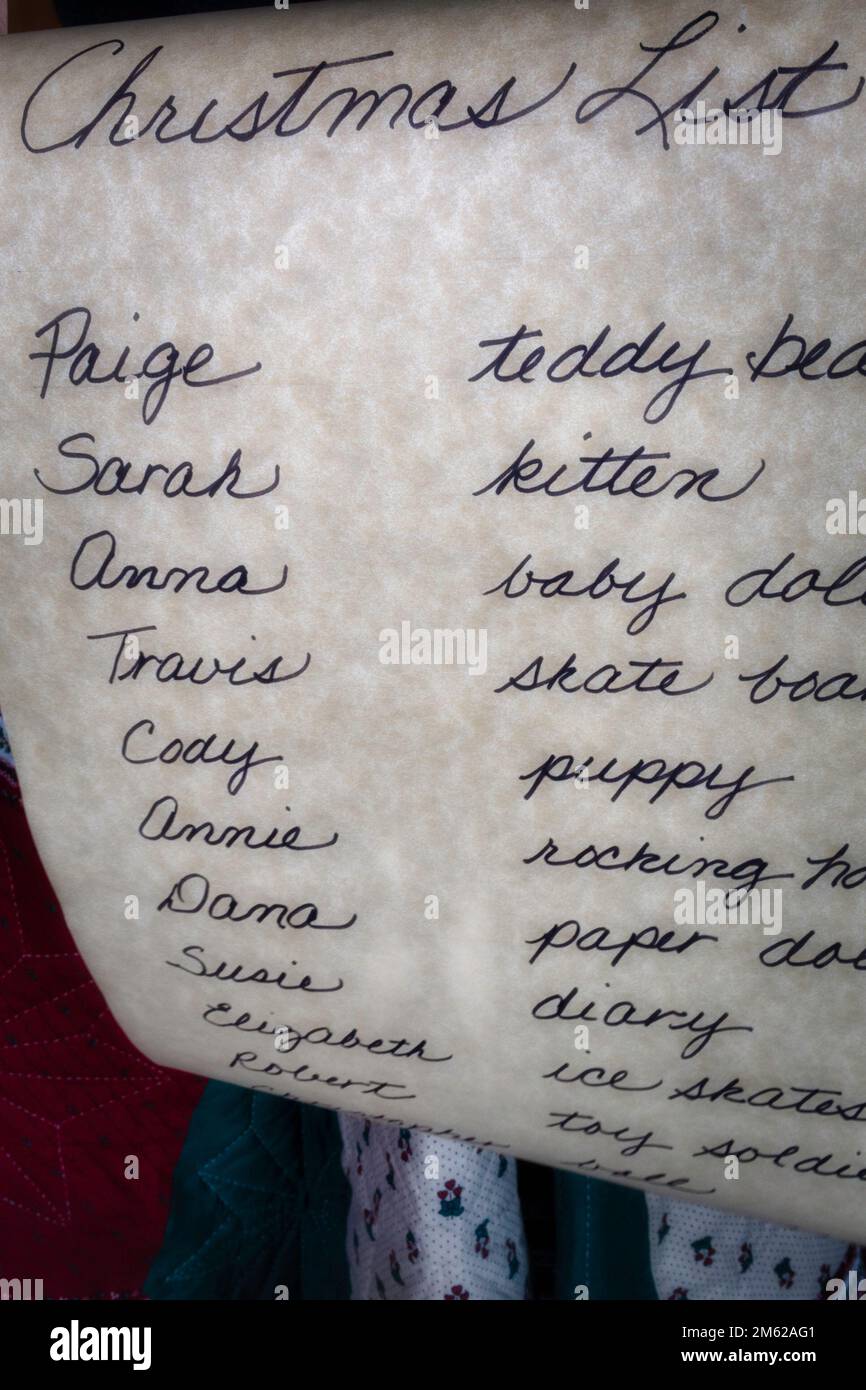 Christmas List
Paige teddy bea
Sarah kitten
Anna baby doll
Travis skate boar
Cody puppy
Annie rocking ho
Dana paper dol
Susie diary
Elizabeth ice skates
Robert toy soldie
ball
alamy
Image ID: 2M62AG1
www.alamy.com